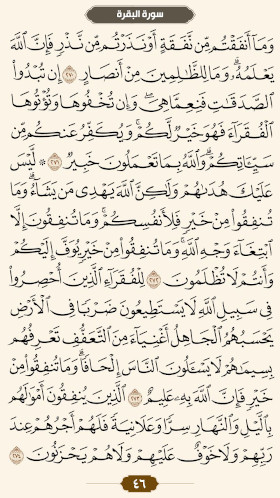 سورة البقرة
وَمَآ أَنفَقۡتُم مِّن نَّفَقَةٍ أَوۡ نَذَرۡتُم مِّن نَّذۡرٖ فَإِنَّ ٱللَّهَ
يَعۡلَمُهُۥۗ وَمَا لِلظَّٰلِمِينَ مِنۡ أَنصَارٍ ٢٧٠ إِن تُبۡدُواْ
ٱلصَّدَقَٰتِ فَنِعِمَّا هِيَۖ وَإِن تُخۡفُوهَا وَتُؤۡتُوهَا
ٱلۡفُقَرَآءَ فَهُوَ خَيۡرٞ لَّكُمۡۚ وَيُكَفِّرُ عَنكُم مِّن
سَيِّـَٔاتِكُمۡۗ وَٱللَّهُ بِمَا تَعۡمَلُونَ خَبِيرٞ ٢٧١ ۞ لَّيۡسَ
عَلَيۡكَ هُدَىٰهُمۡ وَلَٰكِنَّ ٱللَّهَ يَهۡدِي مَن يَشَآءُۗ وَمَا
تُنفِقُواْ مِنۡ خَيۡرٖ فَلِأَنفُسِكُمۡۚ وَمَا تُنفِقُونَ إِلَّا
ٱبۡتِغَآءَ وَجۡهِ ٱللَّهِۚ وَمَا تُنفِقُواْ مِنۡ خَيۡرٖ يُوَفَّ إِلَيۡكُمۡ
وَأَنتُمۡ لَا تُظۡلَمُونَ ٢٧٢ لِلۡفُقَرَآءِ ٱلَّذِينَ أُحۡصِرُواْ
فِي سَبِيلِ ٱللَّهِ لَا يَسۡتَطِيعُونَ ضَرۡبٗا فِي ٱلۡأَرۡضِ
يَحۡسَبُهُمُ ٱلۡجَاهِلُ أَغۡنِيَآءَ مِنَ ٱلتَّعَفُّفِ تَعۡرِفُهُم
بِسِيمَٰهُمۡ لَا يَسۡـَٔلُونَ ٱلنَّاسَ إِلۡحَافٗاۗ وَمَا تُنفِقُواْ مِنۡ
خَيۡرٖ فَإِنَّ ٱللَّهَ بِهِۦ عَلِيمٌ ٢٧٣ ٱلَّذِينَ يُنفِقُونَ أَمۡوَٰلَهُم
بِٱلَّيۡلِ وَٱلنَّهَارِ سِرّٗا وَعَلَانِيَةٗ فَلَهُمۡ أَجۡرُهُمۡ عِندَ
رَبِّهِمۡ وَلَا خَوۡفٌ عَلَيۡهِمۡ وَلَا هُمۡ يَحۡزَنُونَ ٢٧٤
٤٦